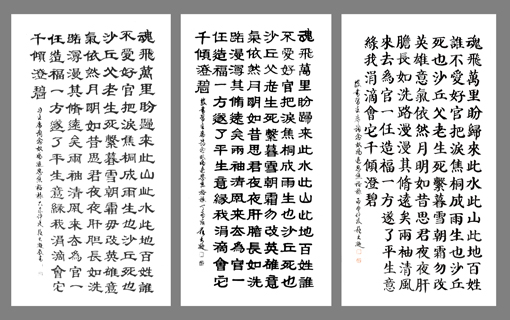 魂飛萬里盼歸來此水此山此地百姓誰
不愛好官把淚焦桐成雨生也沙丘死也
沙丘父老生死繫暮雪朝霜毋改英雄意
氣依然月明如昔思君夜夜肝膽長如洗
路漫漫其脩遠矣兩袖清風來去為官一
任造福一方遂了平生意綠我涓滴會它
千頃澄碧
魂飛萬里盼歸來此水此山此地百姓誰
不愛好官把淚焦桐成雨生也沙丘死也
沙丘父老生死繫暮雪朝霜毋改英雄意
氣依然月明如昔思君夜夜肝膽長如洗
路漫漫其脩遠矣兩袖清風來去為官一
任造福一方遂了平生意綠我涓滴會它
千頃澄碧
魂飛萬里盼歸來此水此山此地百姓
誰不愛好官把淚焦桐成雨生也沙丘
死也沙丘父老生死繫暮雪朝霜毋改
英雄意氣依然月明如昔思君夜夜肝
膽長如洗路漫漫其脩遠矣兩袖清風
來去為官一任造福一方遂了平生意
綠我涓滴會它千頃澄碧